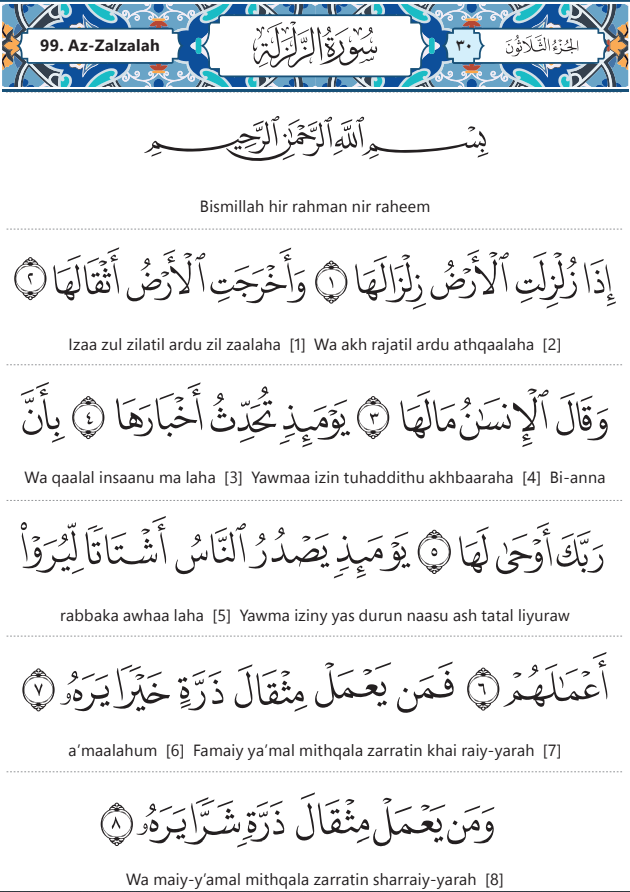 99. Az-Zalzalah سُورَةُ الزَّلْزَلَةِ ٣٠ الجُزْءُ الثَّلَاثُونَ
بِسْمِ ٱللَّهِ ٱلرَّحْمَٰنِ ٱلرَّحِيمِ
Bismillah hir rahman nir raheem
إِذَا زُلْزِلَتِ ٱلْأَرْضُ زِلْزَالَهَا ١ وَأَخْرَجَتِ ٱلْأَرْضُ أَثْقَالَهَا ٢
Izaa zul zilatil ardu zil zaalaha [1] Wa akh rajatil ardu athqaalaha [2]
وَقَالَ ٱلْإِنسَٰنُ مَالَهَا ٣ يَوْمَئِذٍ تُحَدِّثُ أَخْبَارَهَا ٤ بِأَنَّ
Wa qaalal insaanu ma laha [3] Yawmaa izin tuhaddithu akhbaaraha [4] Bi-anna
رَبَّكَ أَوْحَىٰ لَهَا ٥ يَوْمَئِذٍ يَصْدُرُ ٱلنَّاسُ أَشْتَاتًا لِّيُرَوْا۟
rabbaka awhaa laha [5] Yawma iziny yas durun naasu ash tatal liyuraw
أَعْمَٰلَهُمْ ٦ فَمَن يَعْمَلْ مِثْقَالَ ذَرَّةٍ خَيْرًا يَرَهُۥ ٧
a‘maalahum [6] Famaiy ya‘mal mithqala zarratin khai raiy-yarah [7]
وَمَن يَعْمَلْ مِثْقَالَ ذَرَّةٍ شَرًّا يَرَهُۥ ٨
Wa maiy-y‘amal mithqala zarratin sharraiy-yarah [8]